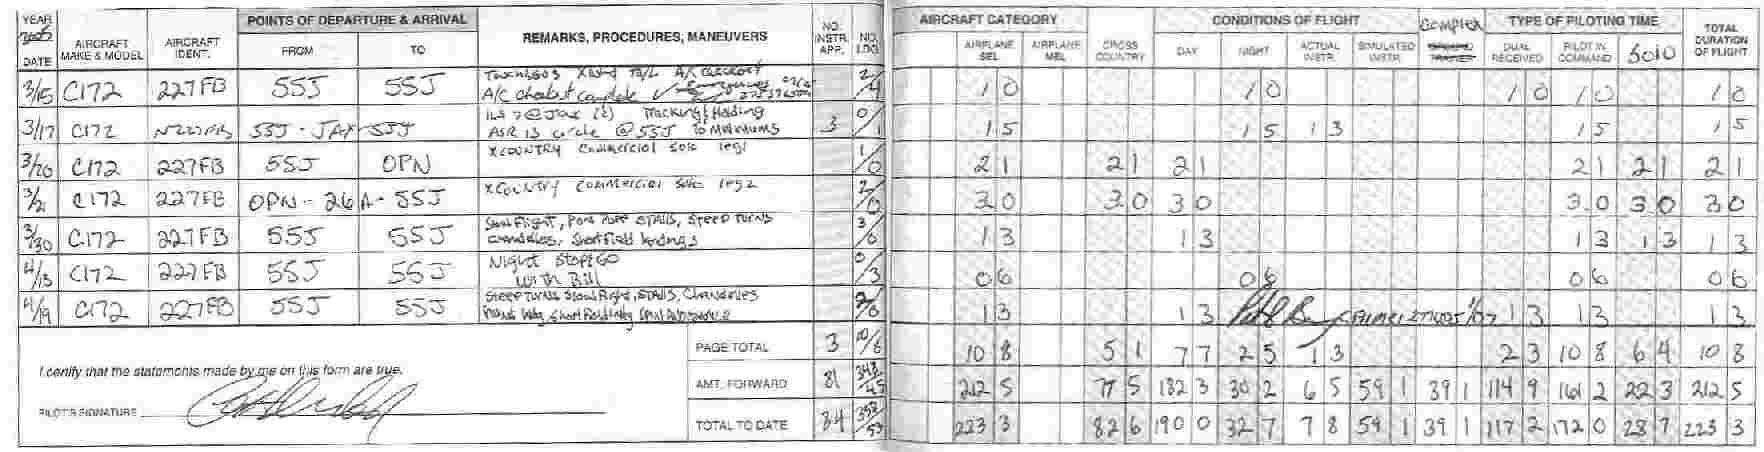 YEAR POINTS OF DEPARTURE & ARRIVAL NO. AIRCRAFT CATEGORY CONDITIONS OF FLIGHT Complex TYPE OF PILOTING TIME TOTAL
DATE AIRCRAFT MAKE & MODEL AIRCRAFT IDENT. FROM TO REMARKS, PROCEDURES, MANEUVERS INSTR. APP. NO. LDG AIRPLANE SEL AIRPLANE MEL CROSS COUNTRY DAY NIGHT ACTUAL INSTR. SIMULATED INSTR. DUAL RECEIVED PILOT IN COMMAND SOLO DURATION OF FLIGHT
3/15 C172 227FB 55J 55J A/C checkout complete 2/4 1 0 1 0 1 0 1 0 1 0
3/17 C172 N227FB 55J - JAX - 55J Tracking & Holding
ASR 13 circle @ 55J to Minimums 3 0/1 1 5 1 5 1 3 1 5 1 5
3/20 C172 227FB 55J OPN XCOUNTRY Commercial Solo leg 1 1/0 2 1 2 1 2 1 2 1 2 1 2 1
3/21 C172 227FB OPN - 26A - 55J XCOUNTRY Commercial Solo leg 2 2/0 3.0 3.0 3 0 3.0 3 0 3 0
3/30 C172 227FB 55J 55J Slow Flight, STALLS, STEEP TURNS
Chandelles, Shortfield landings 3/0 1 3 1 3 1 3 1 3 1 3
4/13 C172 227FB 55J 55J Night Stop & GO
With Bill 0/3 0 6 0 6 0 6 0 6
4/19 C172 227FB 55J 55J Steep Turns Slow Flight, STALLS, Chandelles
2/0 1 3 1 3 1 3 1 3 1 3
I certify that the statements made by me on this form are true.
PILOT'S SIGNATURE
PAGE TOTAL 3 10/8 10 8 5 1 7 7 2 5 1 3 2 3 10 8 6 4 10 8
AMT. FORWARD 81 348/45 212 5 77 5 182 3 30 2 6 5 59 1 39 1 114 9 161 2 22 3 212 5
TOTAL TO DATE 84 358/53 223 3 82 6 190 0 32 7 7 8 59 1 39 1 117 2 172 0 28 7 223 3